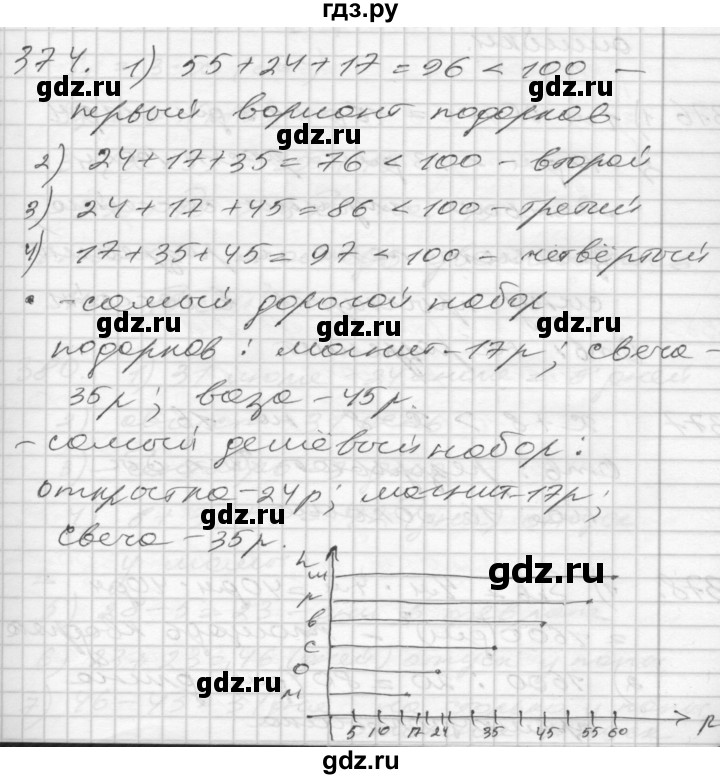 гдз.ру
374. 1) 55+24+17=96<100 —
gdz.ru gdz.ru
первый вариант подарков
gdz.ru
2) 24+17+35=76<100 - второй
3) 24+17+45=86<100 - третий
gdz.ru gdz.ru
4) 17+35+45=97<100 - четвёртый
• - самый дорогой набор
gdz.ru gdz.ru
подарков: магнит - 17р; свеча -
35р; ваза - 45р.
gdz.ru
- самый дешёвый набор:
открытка - 24р; магнит - 17р;
gdz.ru
свеча - 35р.
gdz.ru
ш
р
в
с
о
gdz.ru
м
5 10 17 24 35 45 55 60 р
gdz.ru
gdz.ru